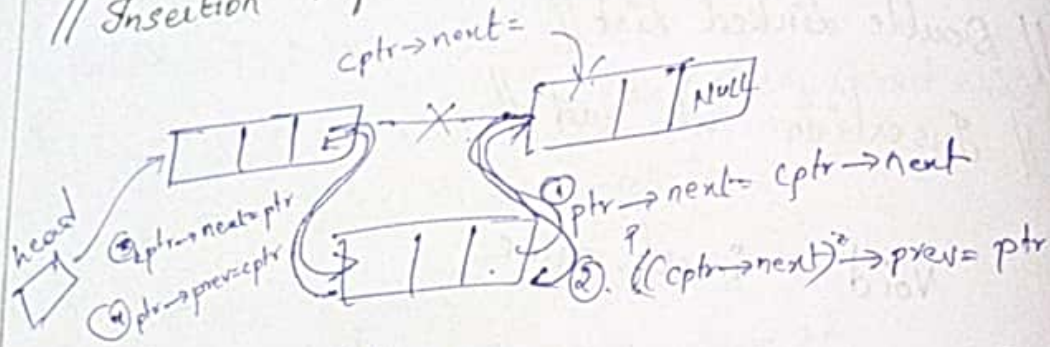 // Insertion
cptr→next=
NULL
head
① ptr→next= cptr→next
③ cptr→next=ptr
② ((cptr→next)→prev= ptr
④ ptr→prev=cptr